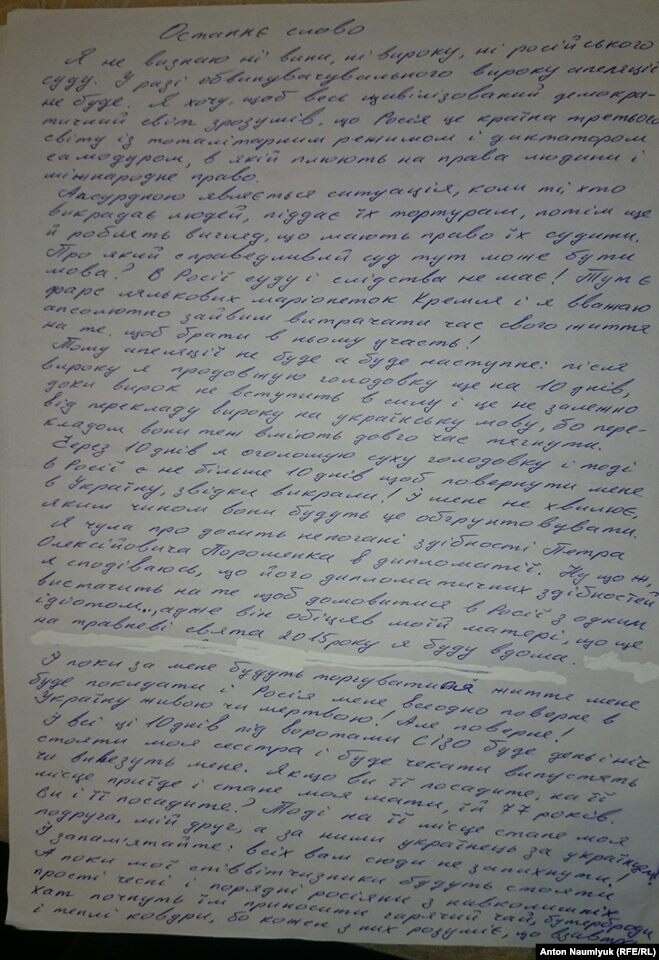 Останнє слово
Я не визнаю ні вини, ні вироку, ні російського
суду. У разі обвинувачувального вироку апеляції
не буде. Я хочу, щоб весь цивілізований демокра-
тичний світ зрозумів, що Росія це країна третього
світу із тоталітарним режимом і диктатором
самодуром, в якій плюють на права людини і
міжнародне право.
Апсурдною являється ситуація, коли ті, хто
викрадає людей, піддає їх тортурам, потім ще
й роблять вигляд, що мають право їх судити.
Про який справедливий суд тут може бути
мова? В Росії суду і слідства не має! Тут є
фарс лялькових маріонеток Кремля і я вважаю
апсолютно зайвим витрачати час свого життя
на те, щоб брати в ньому участь!
Тому апеляції не буде а буде наступне: після
вироку я продовжую голодовку ще на 10 днів,
доки вирок не вступить в силу і це не залежно
від перекладу вироку на українську мову, бо пере-
кладом вони теж вміють довго час тягнути.
Через 10 днів я оголошую суху голодовку і тоді
в Росії є не більше 10 днів щоб повернути мене
в Україну, звідки викрали! І мене не хвилює,
яким чином вони будуть це обгрунтовувати.
Я чула про досить непогані здібності Петра
Олексійовича Порошенка в дипломатії. Ну що ж,
я сподіваюсь, що його дипломатичних здібностей
вистачить на те щоб домовитися в Росії з одним
ідіотом.., адже він обіцяв моїй матері, що ще
на травневі свята 2015 року я буду вдома.
І поки за мене будуть торгуватися життя мене
буде покидати і Росія мене всеодно поверне в
Україну живою чи мертвою! Але поверне!
І всі ці 10 днів під воротами СІЗО буде день і ніч
стояти моя сестра і буде чекати випустять
чи вивезуть мене. Якщо ви її посадите, на її
місце приїде і стане моя мати, їй 77 років.
Ви і її посадите? Тоді на її місце стане моя
подруга, мій друг, а за ними українець за українцем!
І запам'ятайте: всіх вам сюди не запихнути!
А поки мої співвітчизники будуть стояти
прості чесні і порядні росіяни з навколишніх
хат почнуть їм приносити гарячий чай, бутерброди
і теплі ковдри, бо кожен з них розуміє, що взавтра
Anton Naumlyuk (RFE/RL)